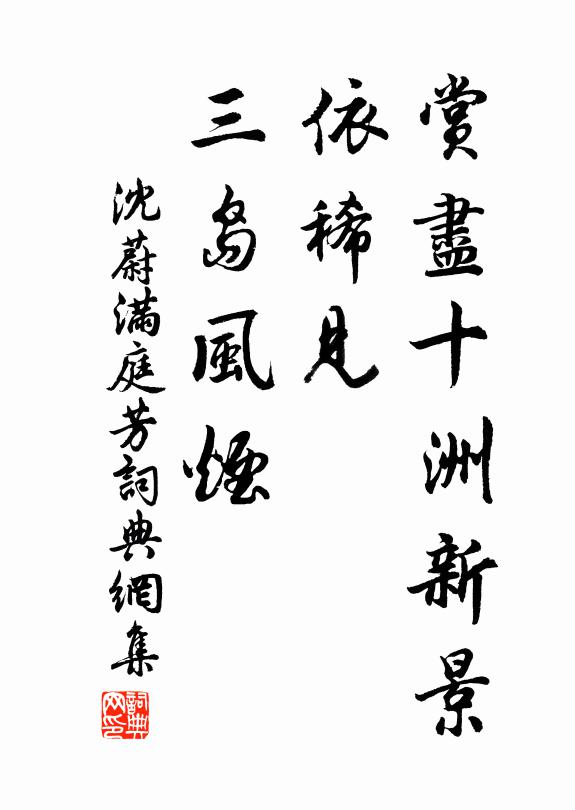 賞盡十洲新景
依稀見
三島風煙
沈蔚滿庭芳詞典網集
詞典網印